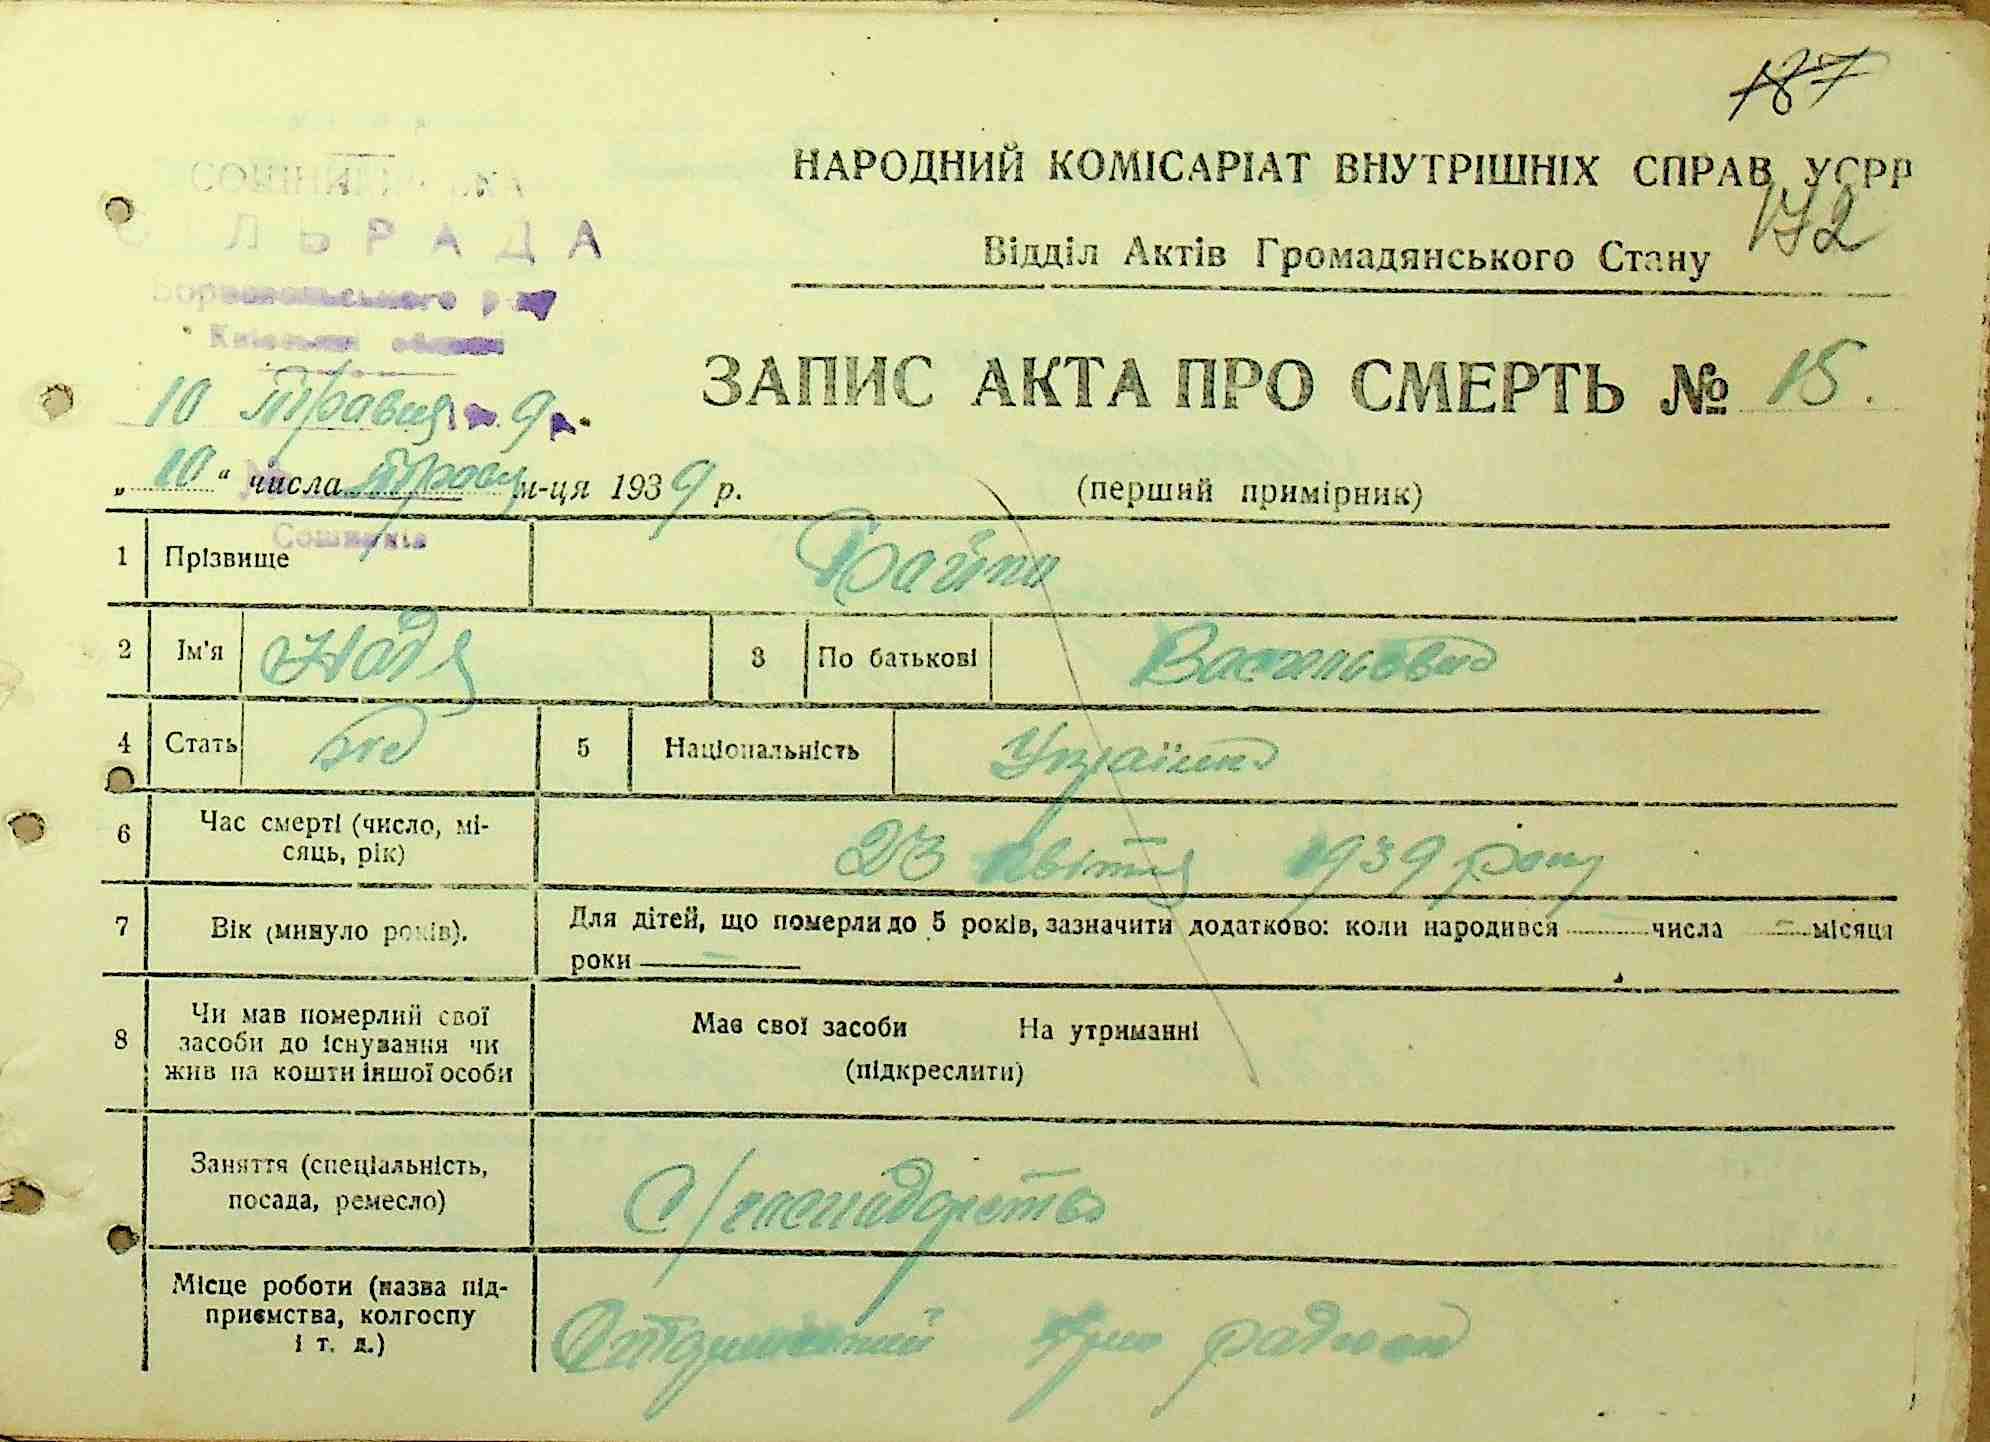 187
НАРОДНИЙ КОМІСАРІАТ ВНУТРІШНІХ СПРАВ УСРР
172
Відділ Актів Громадянського Стану
СІЛЬРАДА
Київської області
10 Травня 9 р.
ЗАПИС АКТА ПРО СМЕРТЬ № 15.
„10“ числа Трав м-ця 1939 р.
(перший примірник)
Сошників
1 Прізвище
2 Ім'я Надя 3 По батькові
4 Стать 5 Національність
6 Час смерті (число, мі-
сяць, рік) 23 квітня 1939 року
7 Вік (минуло років). Для дітей, що померли до 5 років, зазначити додатково: коли народився числа місяця
роки
8 Чи мав померлий свої
засоби до існування чи
жив на кошти іншої особи
Має свої засоби На утриманні
(підкреслити)
Заняття (спеціальність,
посада, ремесло) С/господарство
Місце роботи (назва під-
приємства, колгоспу
і т. д.)